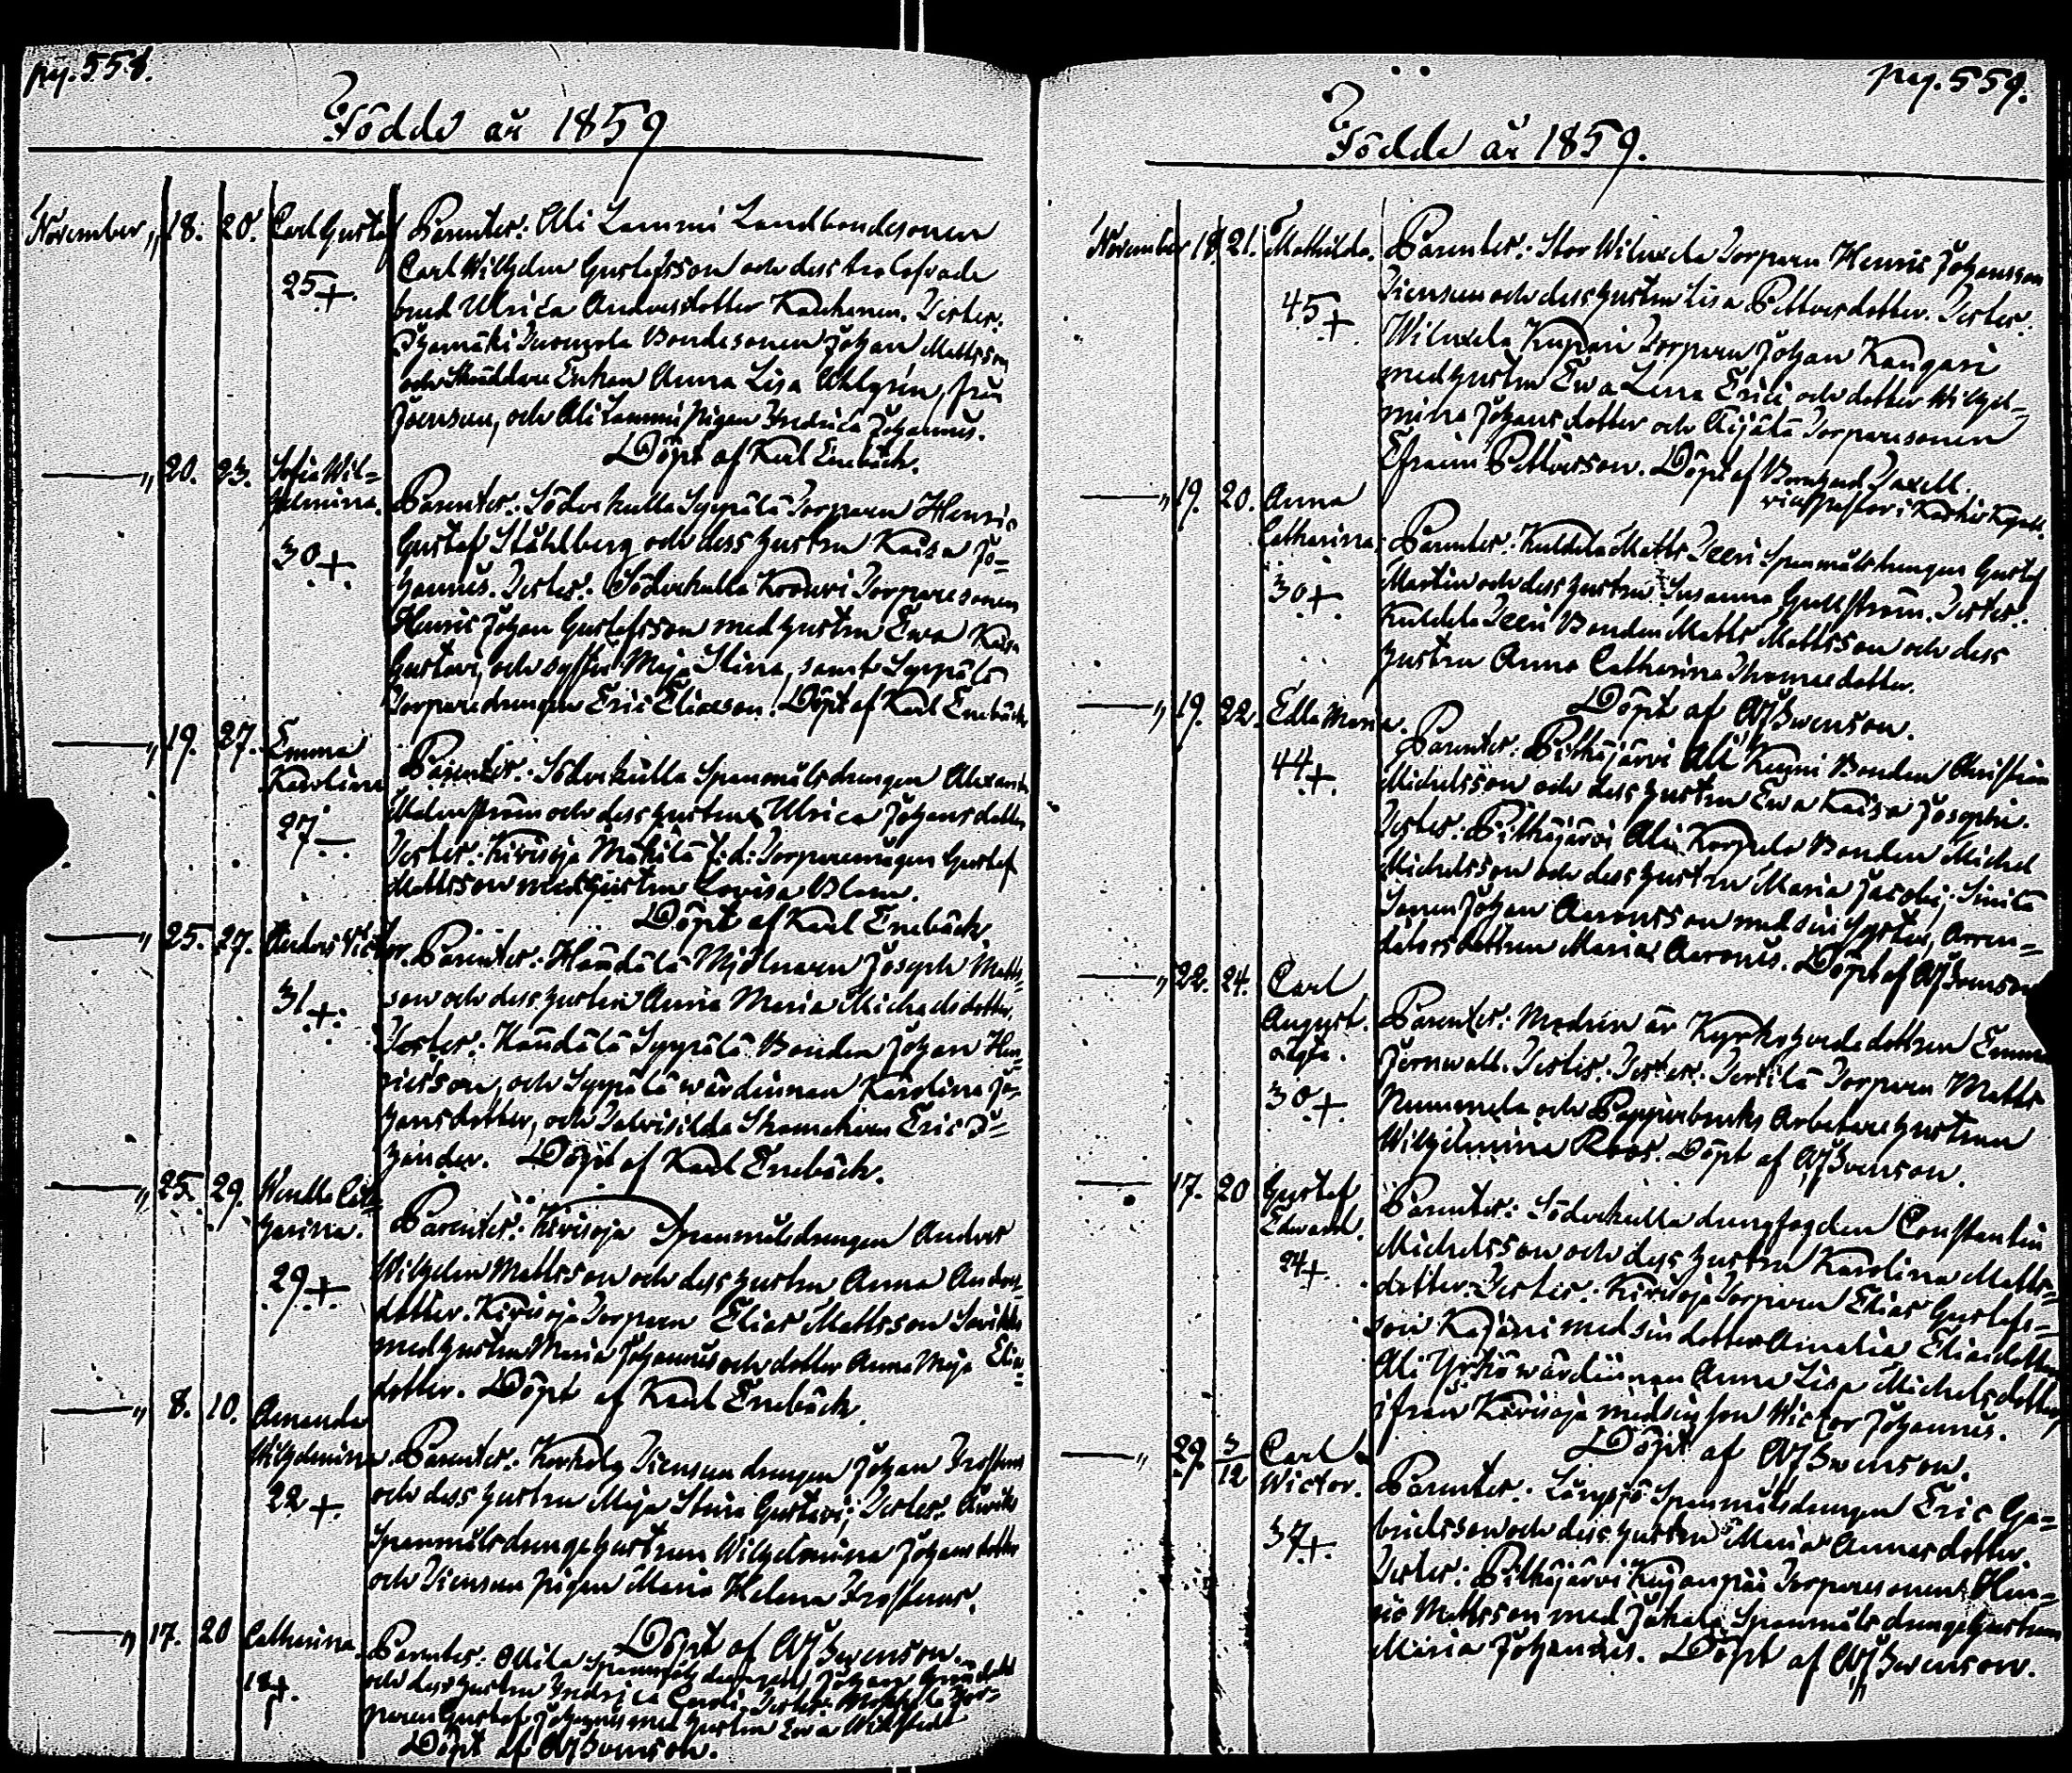 pag. 558.
Födde år 1859
November „ 18. 20. Carl Gustaf Parenter: Ali Lammi Landbondesonen
Carl Wilhelm Gustafsson och dess trolofvade
25 +.
brud Ulrica Andersdotter Testes:
Bondesonen Johan Mattsson
och Enkan Anna Lisa Ahlgrén, från
Joensuu, och Ali Lammi pigan Fredrica Johannus.
Döpt af Karl Enebäck.
— „ 20. 23. Sofia Wil=
helmina. Parenter: Söderkulla Syppälä Torparen Henric
Gustaf Ståhlberg och dess hustru Kaisa Jo=
30 +.
hannus. Testes: Söderkulla Torparesonen
Henric Johan Gustafsson med hustru Ewa Kaisa
Gustavi, och syster Maja Stina, samt Syppälä
Torparedrengen Eric Eliasson. Döpt af Karl Enebäck
— „ 19. 27. Emma
Karolina Parenter: Söderkulla Spanmålsdrengen Alexander
Malmström och dess hustru Ulrica Johansdotter
27 —.
Testes: Kirisoja Mäkilä f.d. Torparemågen Gustaf
Mattsson med hustru Lovisa Blom.
Döpt af Karl Enebäck
— „ 25. 27. Anders Victor. Parenter: Haudälä Mjölnaren Joseph Matts=
son och dess hustru Anna Maria Michaelsdotter.
31 +.
Testes: Haudälä Syppälä Bonden Johan Hen=
ricsson, och Syppälä wärdinnan Karolina Jo=
hansdotter, och Skomakaren Eric
Döpt af Karl Enebäck.
— „ 25. 29. Wendla Cat=
harina. Parenter: Kirisoja Spanmålsdrengen Anders
Wilhelm Mattsson och dess hustru Anna Anders=
29 +.
dotter. Kirisoja Torparen Elias Mattsson
med hustru Maria Johannus och dotter Anna Maja Elias=
dotter. Döpt af Karl Enebäck.
— „ 8. 10. Amanda
Wilhelmina. Parenter: Tiensuu drengen Johan Frosterus
och dess hustru Maja Stina Gustavi; Testes:
22 +.
Spanmålsdrengehustrun Wilhelmina Johansdotter
och Tiensuu pigan Maria Helena Frosterus.
Döpt af Swenson.
— „ 17. 20 Catharina. Parenter: Ollila Spanmålsdrengen Johan
18 +.
och dess hustru Fredrica Caroli. Testes: Tor=
paren Gustaf Johannus med hustru Ewa Wikstedt
Döpt af Swenson.
pag. 559.
Födde år 1859.
November 18. 21. Mathilda. Parenter: Stor Wiluxela Torparen Henric Johansson
Tiensuu och dess hustru Lisa Pettersdotter. Testes:
45 +
Wiluxela Torparen Johan Kangari
med hustru Ewa Lena Erici och dotter Wilhel=
mina Johansdotter och Äijälä Torparesonen
Efraim Pettersson. Döpt af Bernhard Taxell.
vice Pastor i Karkis Kapell.
— „ 19. 20. Anna
Catharina. Parenter: Kuldela Matts Teeri Spanmålsdrengen Gustaf
Martin och dess hustru Susanna Gullström. Testes:
30 +.
Kuldela Teeri Bonden Matts Mattsson och dess
hustru Anna Catharina Thomasdotter.
Döpt af Swenson.
— „ 19. 22. Edla Maria. Parenter: Pitkäjärvi Ali Bonden Christian
Michelsson och dess hustru Ewa Kaisa Josephi.
44 +.
Testes: Pitkäjärvi Ali Korpela Bonden Michel
Michelsson och dess hustru Maria Jacobi; Simila
Sonen Johan Aaronsson med sin Syster, Arren=
datorsdottren Maria Aaronis. Döpt af Swenson
— „ 22. 24. Carl
August. Parenter: Modren är Kyrkoherdedottren Emma
oägta.
Jernwall. Testes: Testes: Torparen Matts
30 +.
Nummela och Pappersbruks Arbetarehustrun
Wilhelmina Roos. Döpt af Swenson.
— „ 17. 20 Gustaf
Edward. Parenter: Söderkulla drengfogden Constantin
Michelsson och dess hustru Karolina Matts=
24 +.
dotter. Testes: Kirisoja Torparen Elias Gustafs=
son Kajani med sin dotter Amalia Eliaedotter
Ali Yrkö wärdinnan Anna Lisa Michelsdotter
ifrån Kirisoja med sin son Wictor Johannus.
Döpt af Swenson.
— „ 29. 3/12 Carl
Wictor. Parenter: Långsjö Spanmålsdrengen Eric Ga=
brielsson och dess hustru Maria Annasdotter.
37 +.
Testes: Pitkäjärvi Torparesonen Hen=
ric Mattsson med Spanmålsdrengehustrun
Maria Johannis. Döpt af Swenson.